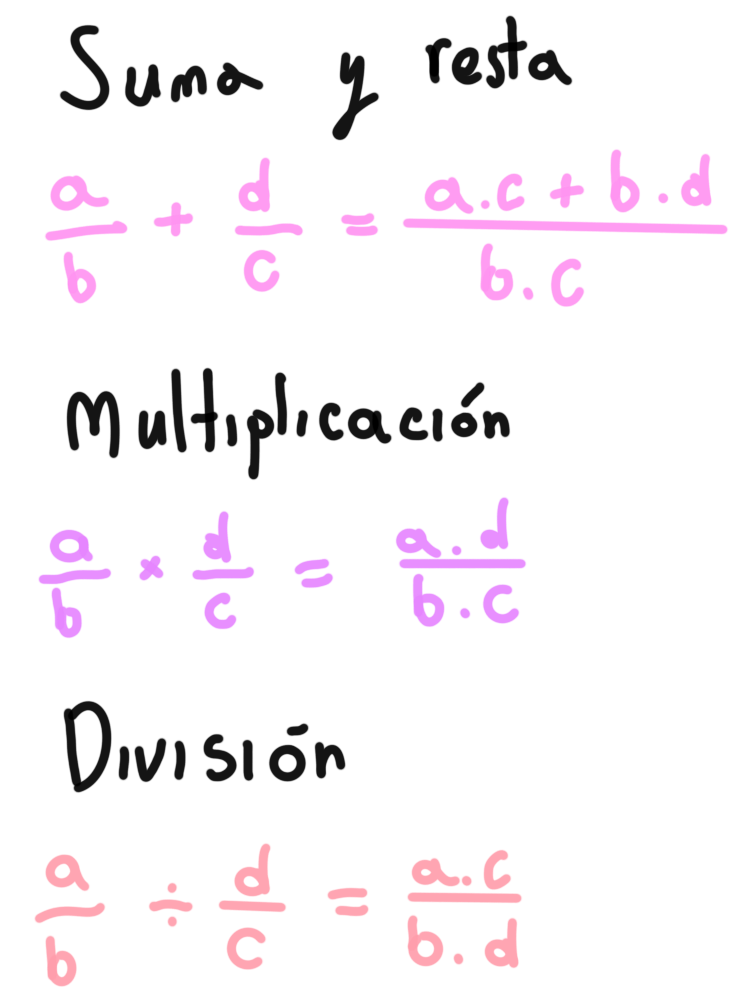 Suma y resta
a/b + d/c = a.c + b.d / b.c
Multiplicación
a/b × d/c = a.d / b.c
División
a/b ÷ d/c = a.c / b.d